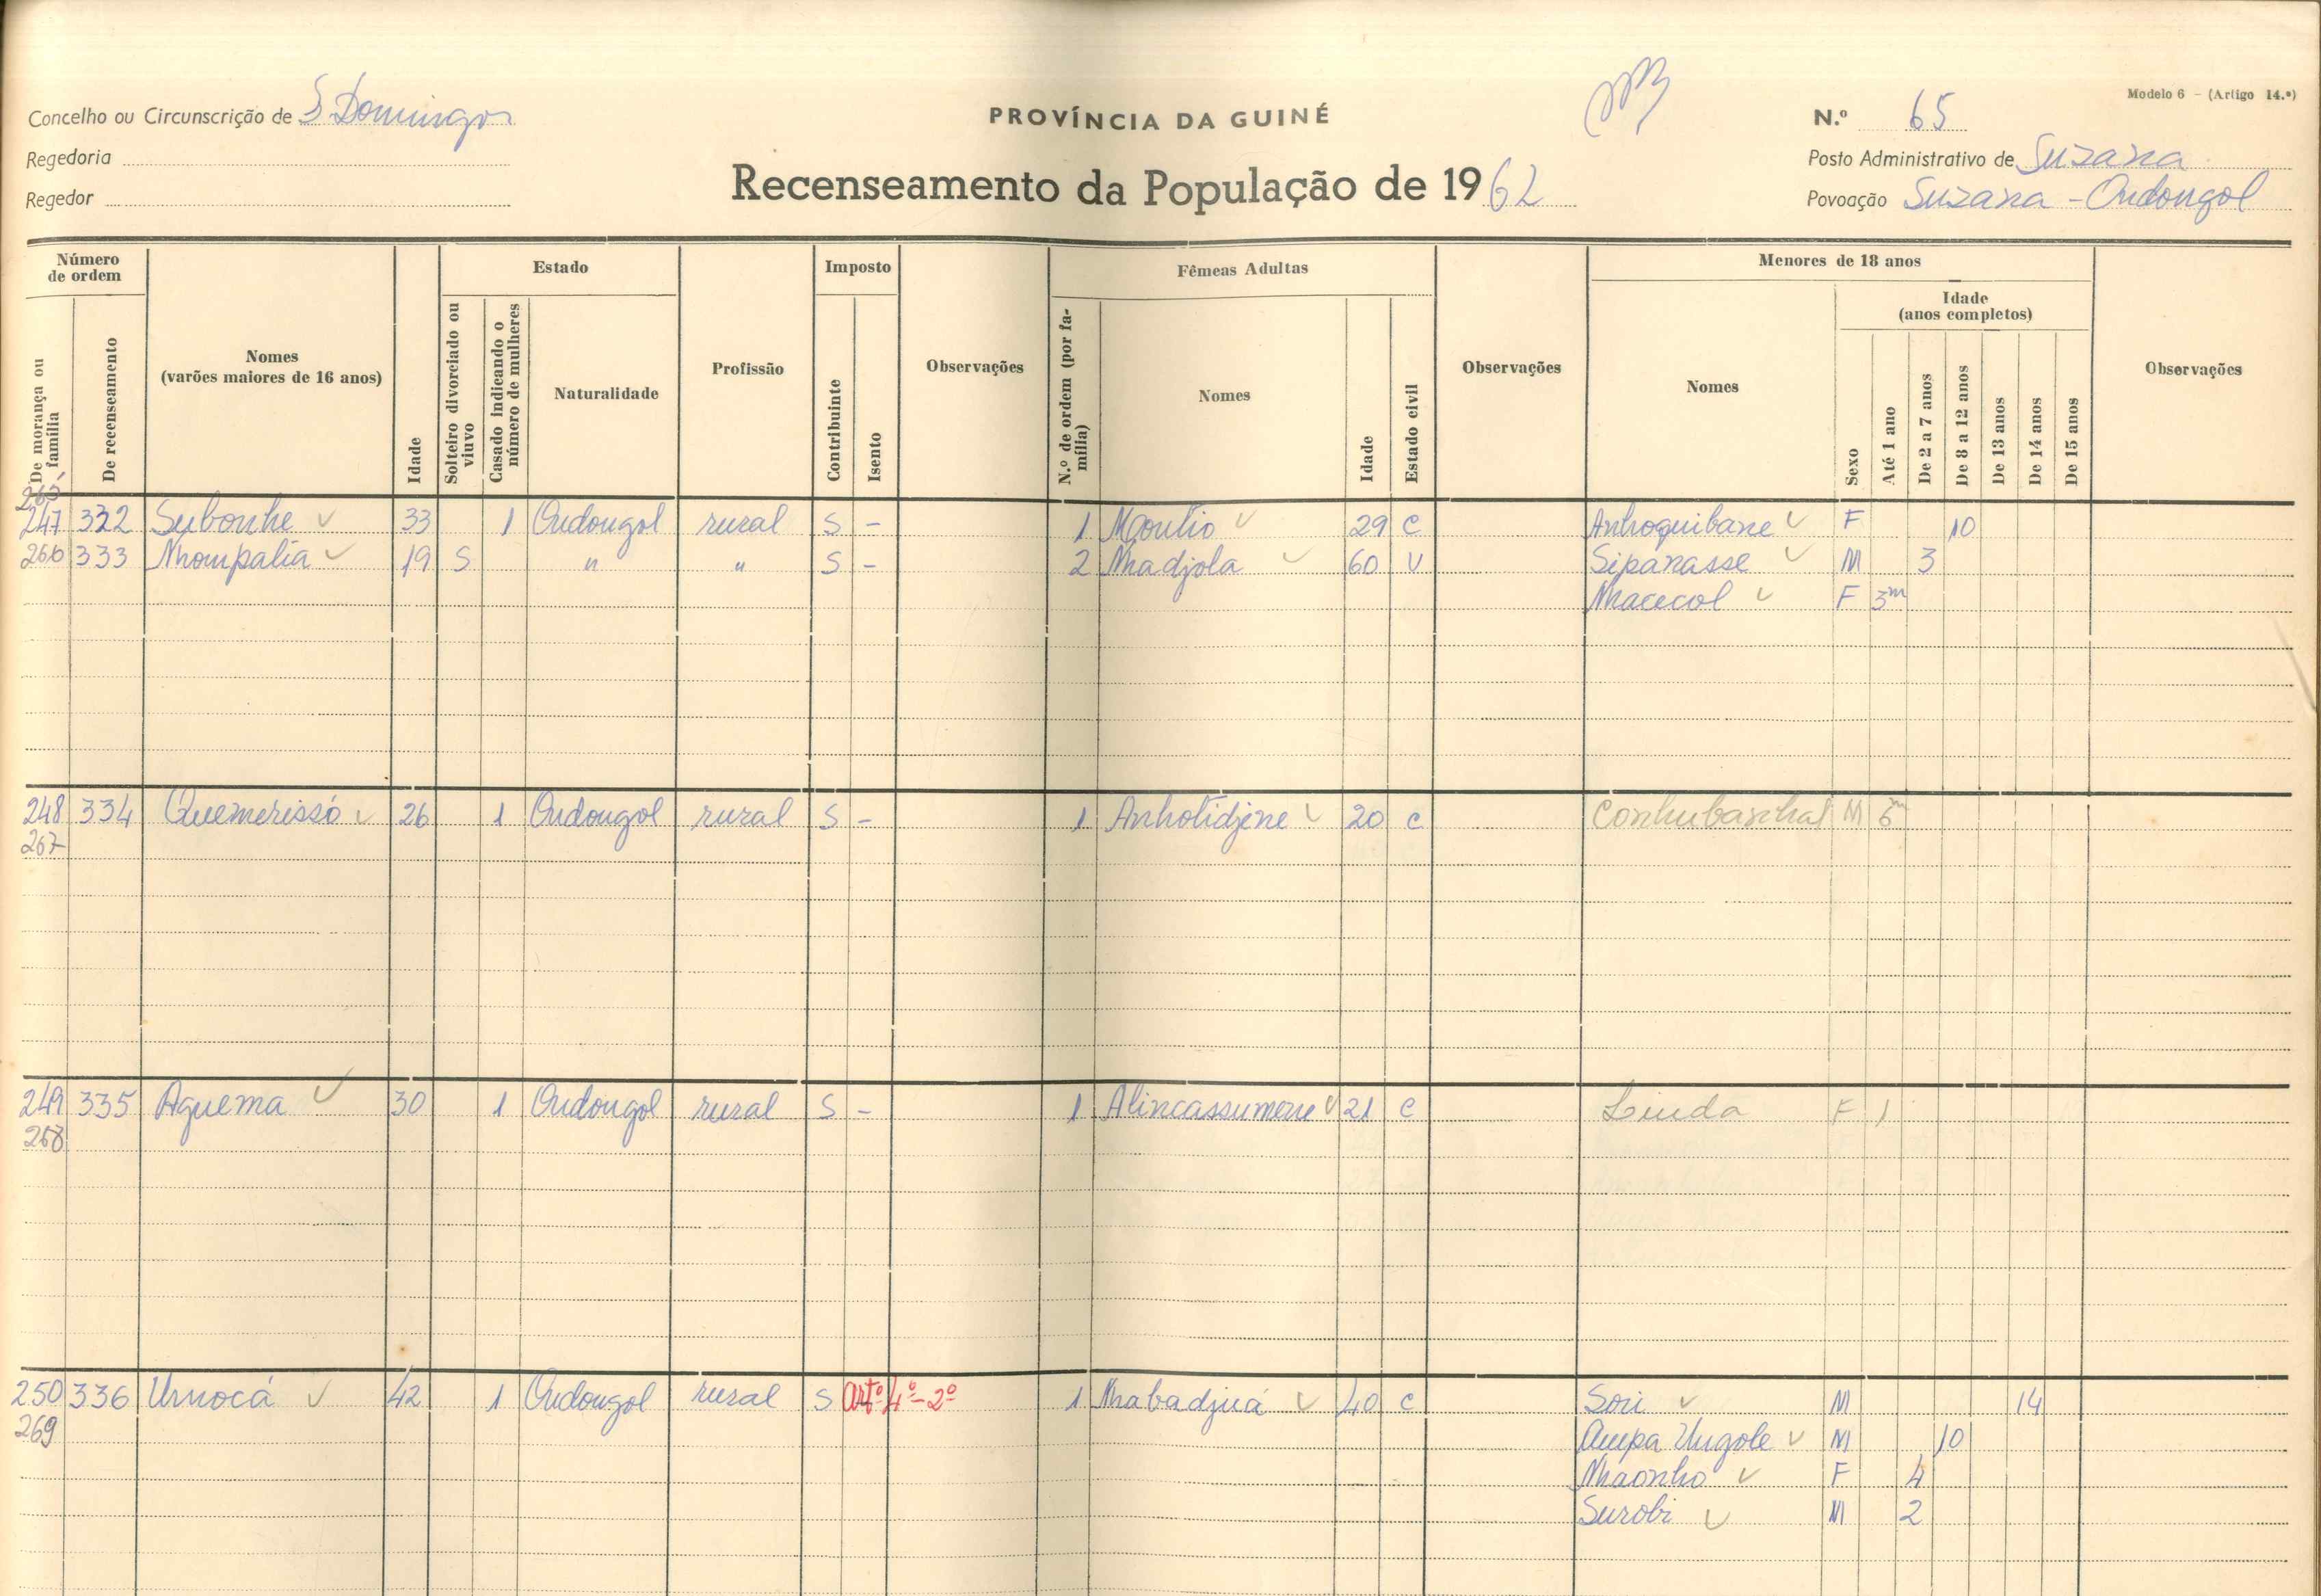 Modelo 6 - (Artigo 14.º)
Concelho ou Circunscrição de S Domingos
PROVÍNCIA DA GUINÉ
N.º 65
Regedoria
Posto Administrativo de Suzana
Recenseamento da População de 1962
Regedor
Povoação Suzana - Oudongol
Número de ordem
Estado
Imposto
Fêmeas Adultas
Menores de 18 anos
De morança ou família
De recenseamento
Nomes (varões maiores de 16 anos)
Idade
Solteiro divorciado ou viuvo
Casado indicando o número de mulheres
Naturalidade
Profissão
Contribuinte
Isento
Observações
N.º de ordem (por família)
Nomes
Idade
Estado civil
Observações
Nomes
Sexo
Idade (anos completos)
Até 1 ano
De 2 a 7 anos
De 8 a 12 anos
De 13 anos
De 14 anos
De 15 anos
Observações
265
247 322 Subonhe 33 1 Oudongol rural S - 1 29 C Anhoquibane F 10
266 333 Nhompalia 19 S " " S - 2 Nhadjola 60 V Sipanasse M 3
Nhacecol F 3m
248 334 Quemerissó 26 1 Oudongol rural S - 1 Anhotidjene 20 C Conhubanhal M 6m
267
249 335 Aguema 30 1 Oudongol rural S - 1 Alincassumene 21 C Linda F 1
268
250 336 Urnocá 42 1 Oudongol rural S artº 4º-2º 1 Nhabadjuá 40 C Sori M 14
269 Ampa Ungole M 10
Nhaonho F 4
Surobi M 2